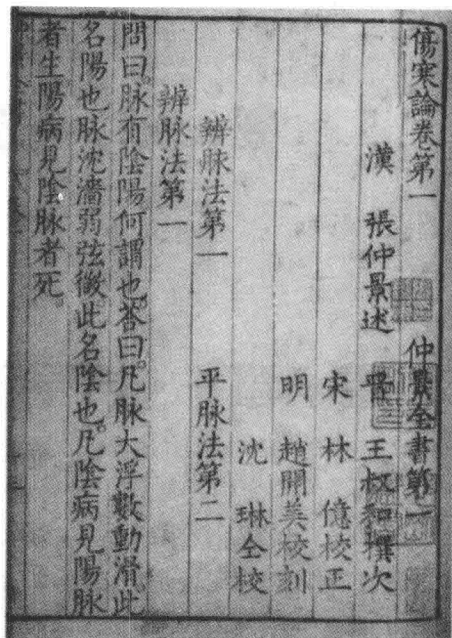 傷寒論卷第一 仲景全書第一
漢 張仲景述 晉 王叔和撰次
宋 林 億校正
明 趙開美校刻
沈 琳仝校
辨脉法第一 平脉法第二
辨脉法第一
問曰。脉有陰陽何謂也。荅曰。凡脉大浮數動滑。此
名陽也脉沈濇弱弦微此名陰也。凡陰病見陽脉
者生陽病見陰脉者死